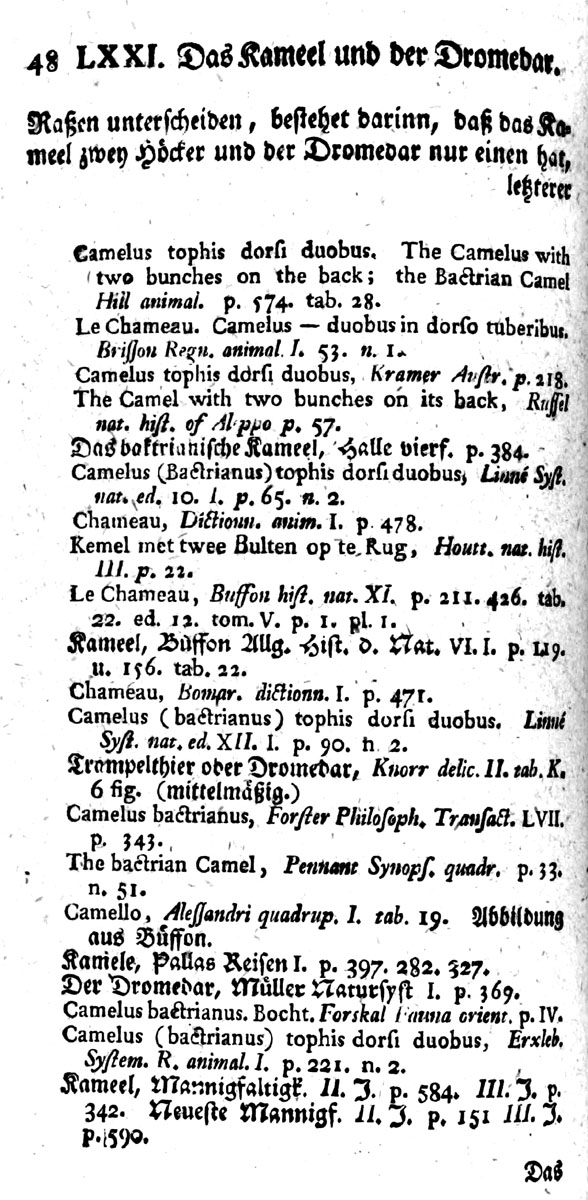 48 LXXI. Das Kameel und der Dromedar.
Raßen unterscheiden, bestehet darinn, daß das Ka-
meel zwey Höcker und der Dromedar nur einen hat,
letzterer
Camelus tophis dorſi duobus. The Camelus with
two bunches on the back; the Bactrian Camel
Hill animal. p. 574. tab. 28.
Le Chameau. Camelus — duobus in dorſo tuberibus.
Briſſon Regn. animal. I. 53. n. 1.
Camelus tophis dorſi duobus, Kramer Auſtr. p. 218.
The Camel with two bunches on its back, Ruſſel
nat. hiſt. of Aleppo p. 57.
Das baktrianiſche Kameel, Halle vierf. p. 384.
Camelus (Bactrianus) tophis dorſi duobus, Linné Syſt.
nat. ed. 10. I. p. 65. n. 2.
Chameau, Dictionn. anim. I. p. 478.
Kemel met twee Bulten op te Rug, Houtt. nat. hiſt.
III. p. 22.
Le Chameau, Buffon hiſt. nat. XI. p. 211. 426. tab.
22. ed. 12. tom. V. p. 1. pl. 1.
Kameel, Büffon Allg. Hiſt. d. Nat. VI. I. p. 119.
u. 156. tab. 22.
Chameau, Bomar. dictionn. I. p. 471.
Camelus (bactrianus) tophis dorſi duobus. Linné
Syſt. nat. ed. XII. I. p. 90. n 2.
Trampelthier oder Dromedar, Knorr delic. II. tab. K.
6 fig. (mittelmäßig.)
Camelus bactrianus, Forſter Philoſoph. Tranſact. LVII.
p. 343.
The bactrian Camel, Pennant Synopſ. quadr. p. 33.
n. 51.
Camello, Aleſſandri quadrup. I. tab. 19. Abbildung
aus Büffon.
Kamele, Pallas Reiſen I. p. 397. 282. 327.
Der Dromedar, Müller Naturſyſt I. p. 369.
Camelus bactrianus. Bocht. Forskal Fauna orient. p. IV.
Camelus (bactrianus) tophis dorſi duobus, Erxleb.
Syſtem. R. animal. I. p. 221. n. 2.
Kameel, Mannigfaltigk. II. J. p. 584. III. J. p.
342. Neueſte Mannigf. II. J. p. 151 III. J.
p. 590.
Das